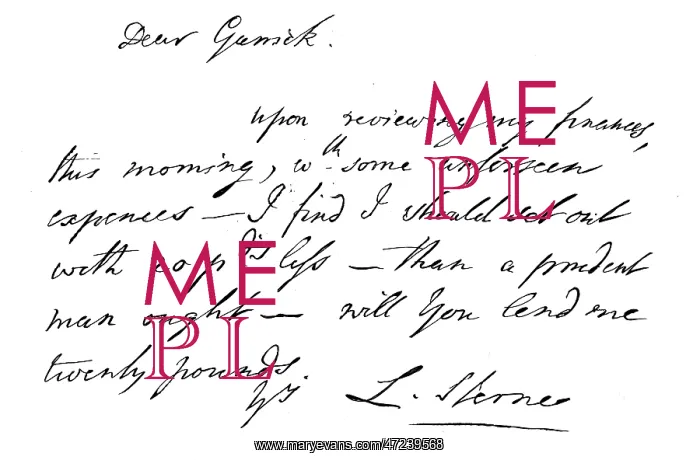 Dear Garrick.
upon reviewing my finances,
this morning, wth some unforseen
expences — I find I should set out
with 20 pds less — than a prudent
man ought — will You lend me
twenty pounds
Yrs L. Sterne
ME
PL
ME
PL
www.maryevans.com/47239568